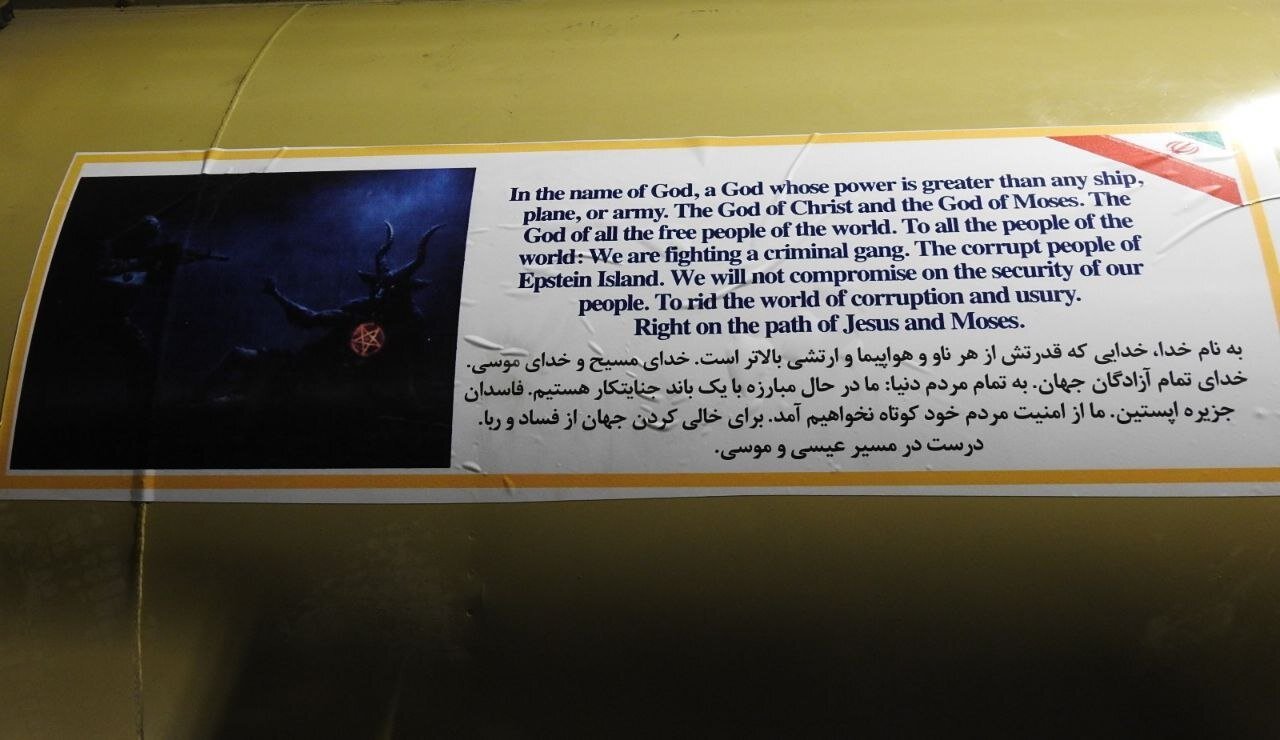 In the name of God, a God whose power is greater than any ship,
plane, or army. The God of Christ and the God of Moses. The
God of all the free people of the world. To all the people of the
world: We are fighting a criminal gang. The corrupt people of
Epstein Island. We will not compromise on the security of our
people. To rid the world of corruption and usury.
Right on the path of Jesus and Moses.
به نام خدا، خدایی که قدرتش از هر ناو و هواپیما و ارتشی بالاتر است. خدای مسیح و خدای موسی.
خدای تمام آزادگان جهان. به تمام مردم دنیا: ما در حال مبارزه با یک باند جنایتکار هستیم. فاسدان
جزیره اپستین. ما از امنیت مردم خود کوتاه نخواهیم آمد. برای خالی کردن جهان از فساد و ربا.
درست در مسیر عیسی و موسی.